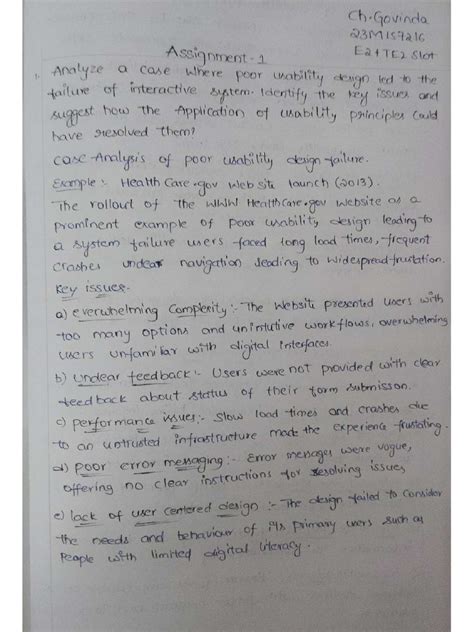 Ch.Govinda
23MIS7216
E2+TE2 Slot
Assignment-1
1. Analyze a case where poor usability design led to the
failure of interactive system. Identify the key issues and
suggest how the Application of usability principles could
have resolved them?
case-Analysis of poor usability design failure.
Example :- Health Care.gov website launch (2013).
The rollout of the WWW Healthcare.gov website as a
prominent example of poor usability design leading to
a system failure users faced long load times, frequent
crashes unclear navigation leading to widespread frustation.
Key issues-
a) overwhelming complexity :- The website presented users with
too many options and unintutive workflows, overwhelming
users unfamiliar with digital interfaces.
b) unclear feedback :- Users were not provided with clear
feedback about status of their form submisson.
c) performance issues :- Slow load times and crashes due
to an untrusted infrastructure made the experience frustating.
d) poor error messaging :- Error messages were vogue,
offering no clear instructions for resolving issues
e) lack of user centered design :- The design failed to consider
the needs and behaviour of its primary users such as
People with limited digital literacy.